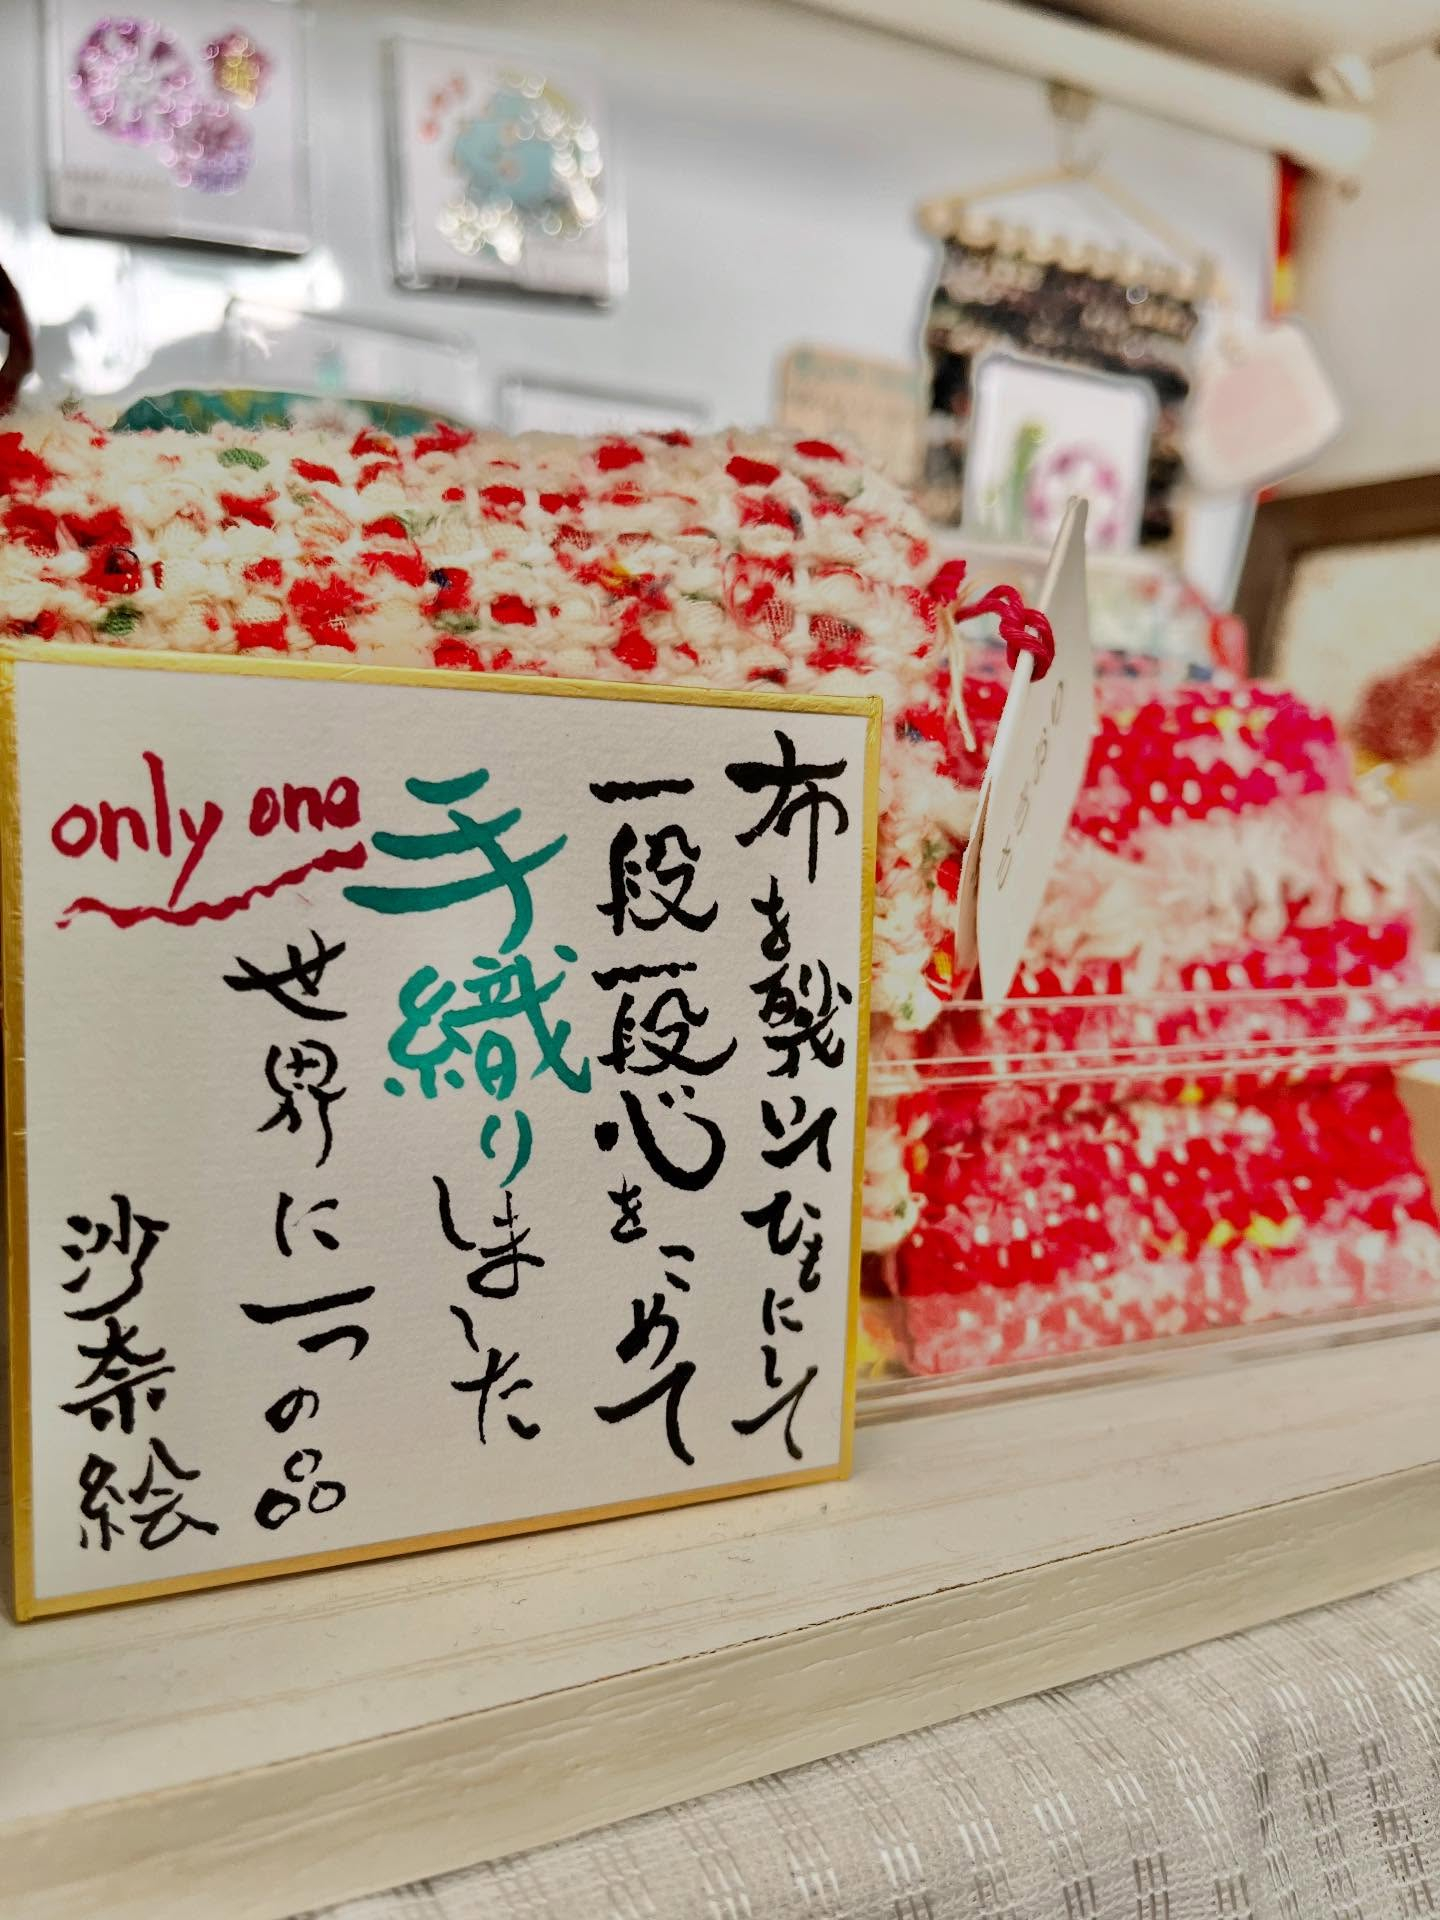 布を裂いてひもにして
一段一段心をこめて
手織りしました
only one
世界に一つの品
沙奈絵